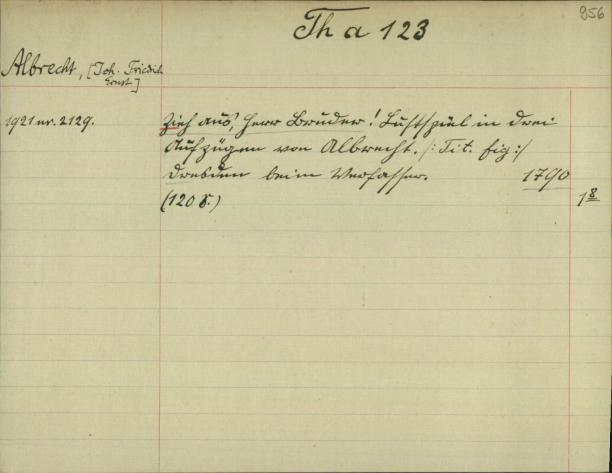 956
Th a 123
Albrecht, [Joh. Friedrich
Ernst]
1921 nr. 2129.
Zieh aus, Herr Bruder! Lustspiel in drei
Aufzügen von Albrecht. /: Tit. fig :/
Dresden beim Verfasser. 1790
(120 S.)
1 8